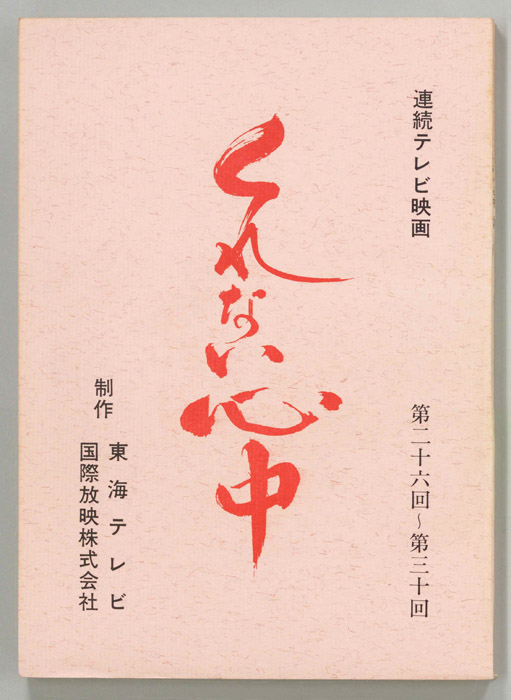 連続テレビ映画
第二十六回～第三十回
くれない心中
制作
東海テレビ
国際放映株式会社